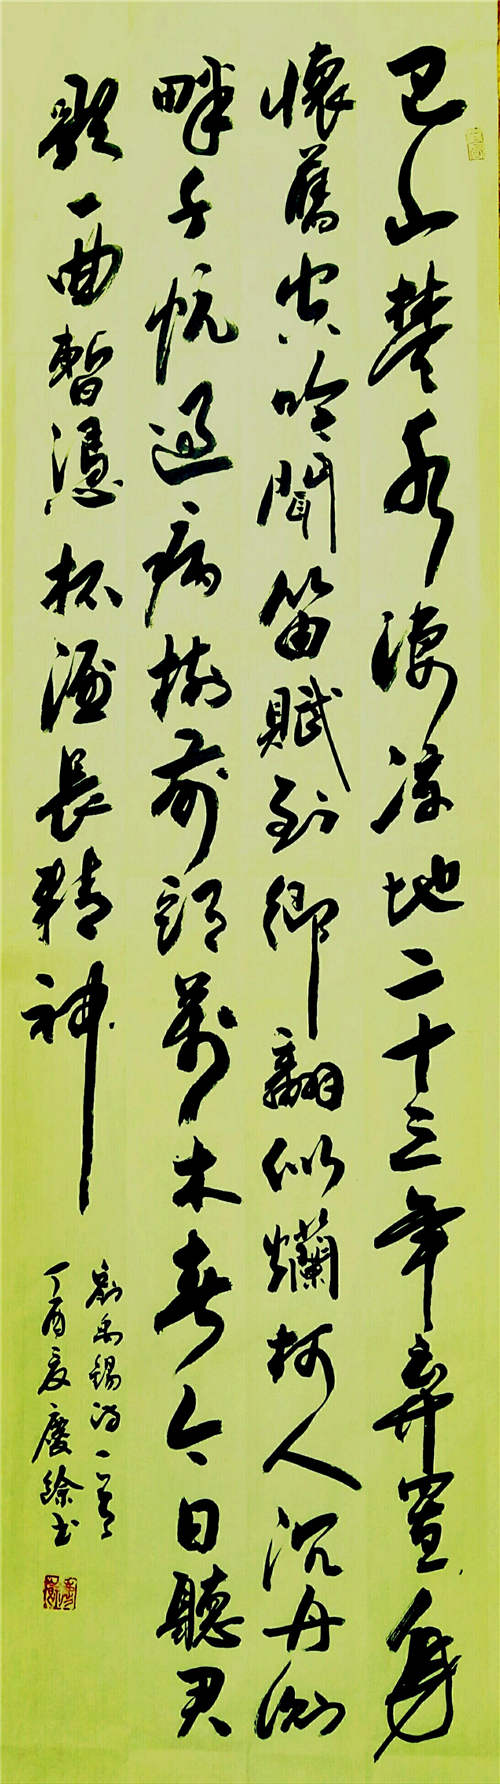 巴山楚水淒涼地二十三年棄置身
懷舊空吟聞笛賦到鄉翻似爛柯人沉舟側
畔千帆過病樹前頭萬木春今日聽君
歌一曲暫憑杯酒長精神
劉禹錫詩一首
丁酉夏慶书